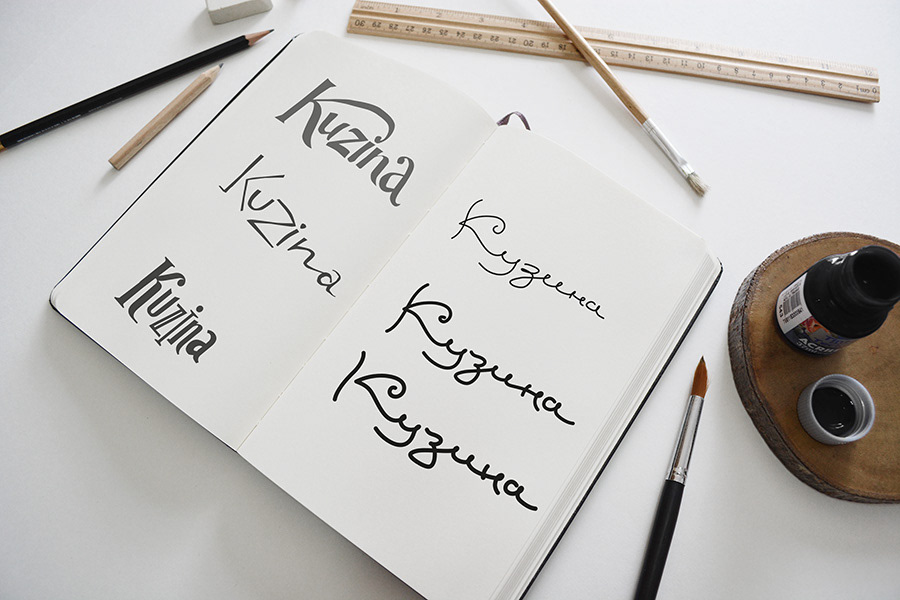 Kuzina
KuZina
Kuzina
Кузина
Кузина
Кузина
ACRYL